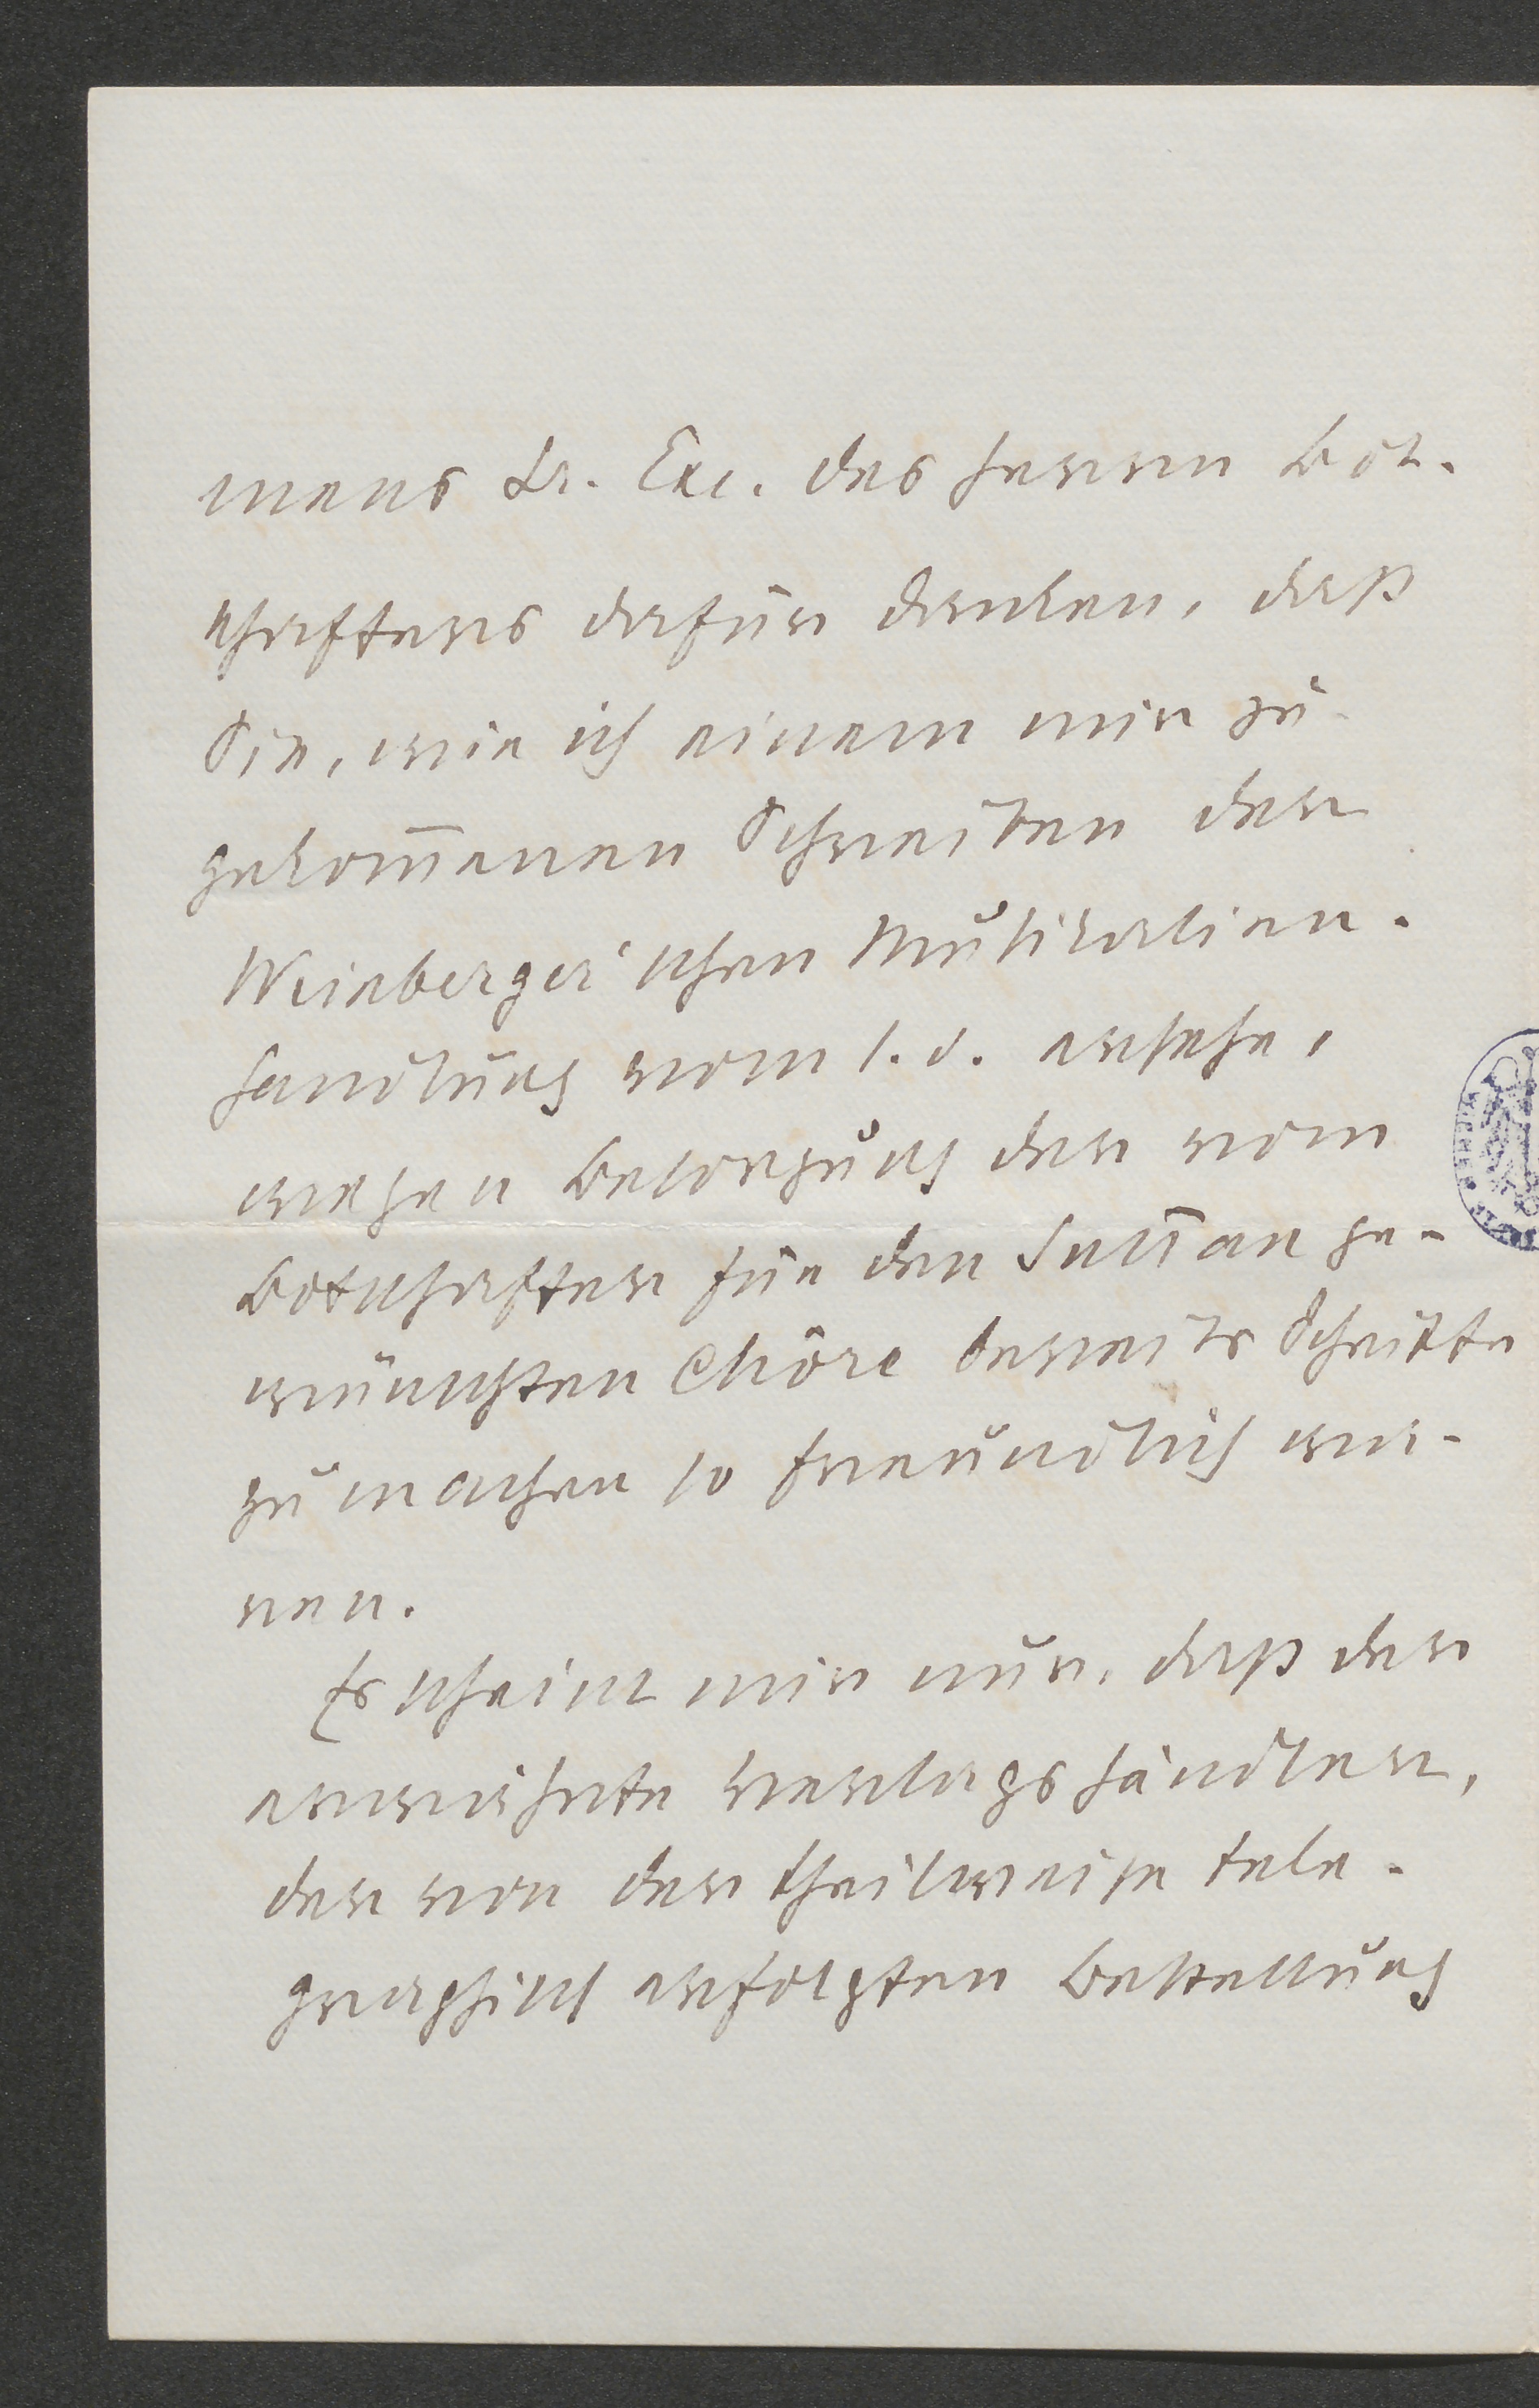 mens Sr. Exc. des Herrn Bot-
schafters dafür danken, daß
Sie, wie ich einem mir zu-
gekom̅enen Schreiben der
Weinberger'schen Musikalien-
handlung vom 1. d. ersehe,
wegen Besorgung der vom
Botschafter für den ge-
wünschten Chöre bereits Schritte
zu machen so freundlich wa-
ren.
Es scheint mir nur, daß der
erwähnte Verlagshändler,
der von der theilweise tele-
graphisch erfolgten Bestellung